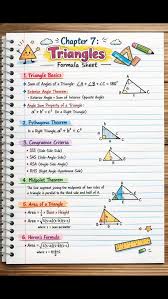 Chapter 7:
Triangles
Formula Sheet
1. Triangle Basics
• Sum of Angles of a Triangle: ∠A + ∠B + ∠C = 180°
• Exterior Angle Theorem:
• Exterior Angle = Sum of Interior Opposite Angles
• Angle Sum Property of a Triangle:
In a Right Triangle,
2. Pythagoras Theorem
In a Right Triangle, a² + b² = c²
3. Congruence Criteria
• SSS (Side-Side-Side)
• SAS (Side-Angle-Side)
• ASA (Angle-Side-Angle)
• RHS (Right Angle-Hypotenuse-Side)
4. Midpoint Theorem
The line segment joining the midpoints of two sides of
a triangle is parallel to the third side and half of it.
5. Area of a Triangle
• Area = 1/2 × Base × Height
• Area =
6. Heron's Formula
• Area =
where s =